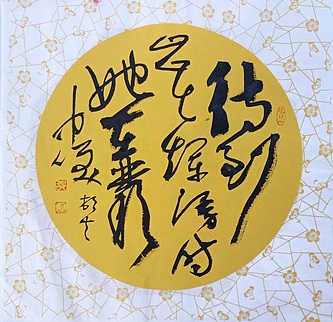 待到
山花烂漫时
她在丛
中笑